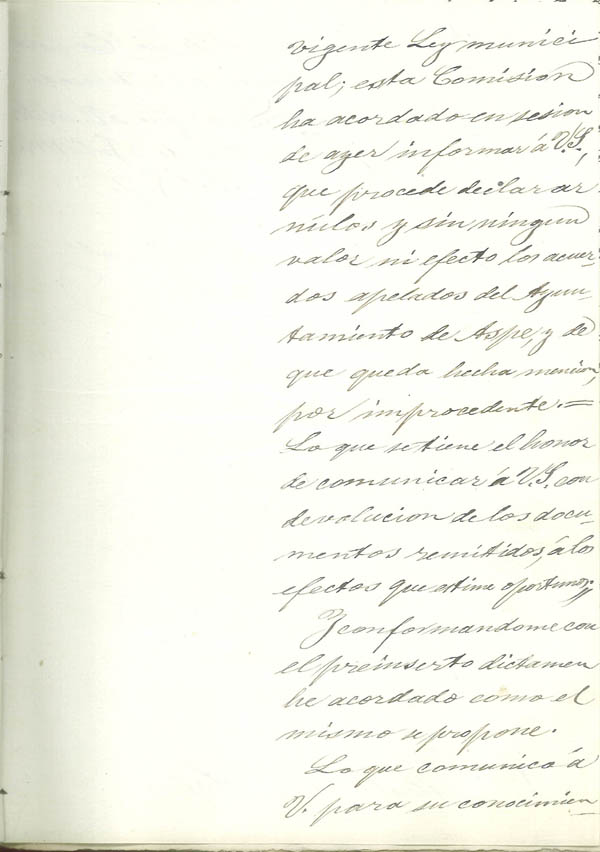 vigente Ley munici
pal; esta Comisión
ha acordado en sesion
de ayer informar á V.S.,
que procede declarar
nulos y sin ningun
valor ni efecto los acuer-
dos apelados del Ayun-
tamiento de Aspe, y de
que queda hecha mencion,
por improcedente.=
Lo que se tiene el honor
de comunicar á V.S. con
devolucion de los docu-
mentos remitidos, á los
efectos que estime oportunos.,,
Y conformandome con
el preinserto dictamen
he acordado como el
mismo se propone.
Lo que comunico á
V. para su conocimien-